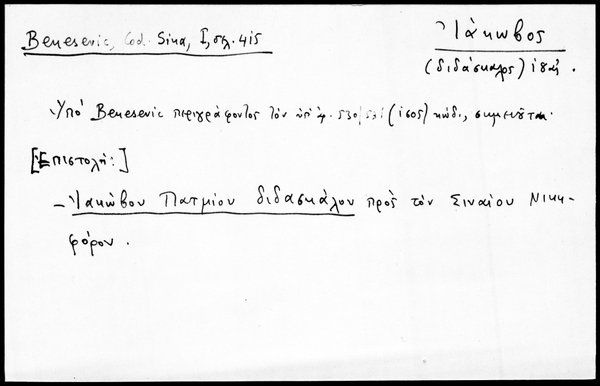 Benesevic, Cod. Sina, I, σελ. 415
Ἰάκωβος
(διδάσκαλος)
Ὑπό Benesevic περιγράφοντος τόν ὑπ' ἀρ. 530/531 (ἴσος) κώδ., σημειοῦται.
[Ἐπιστολή:]
– Ἰακώβου Πατμίου διδασκάλου πρός τόν Σιναίου Νικη-
φόρον.